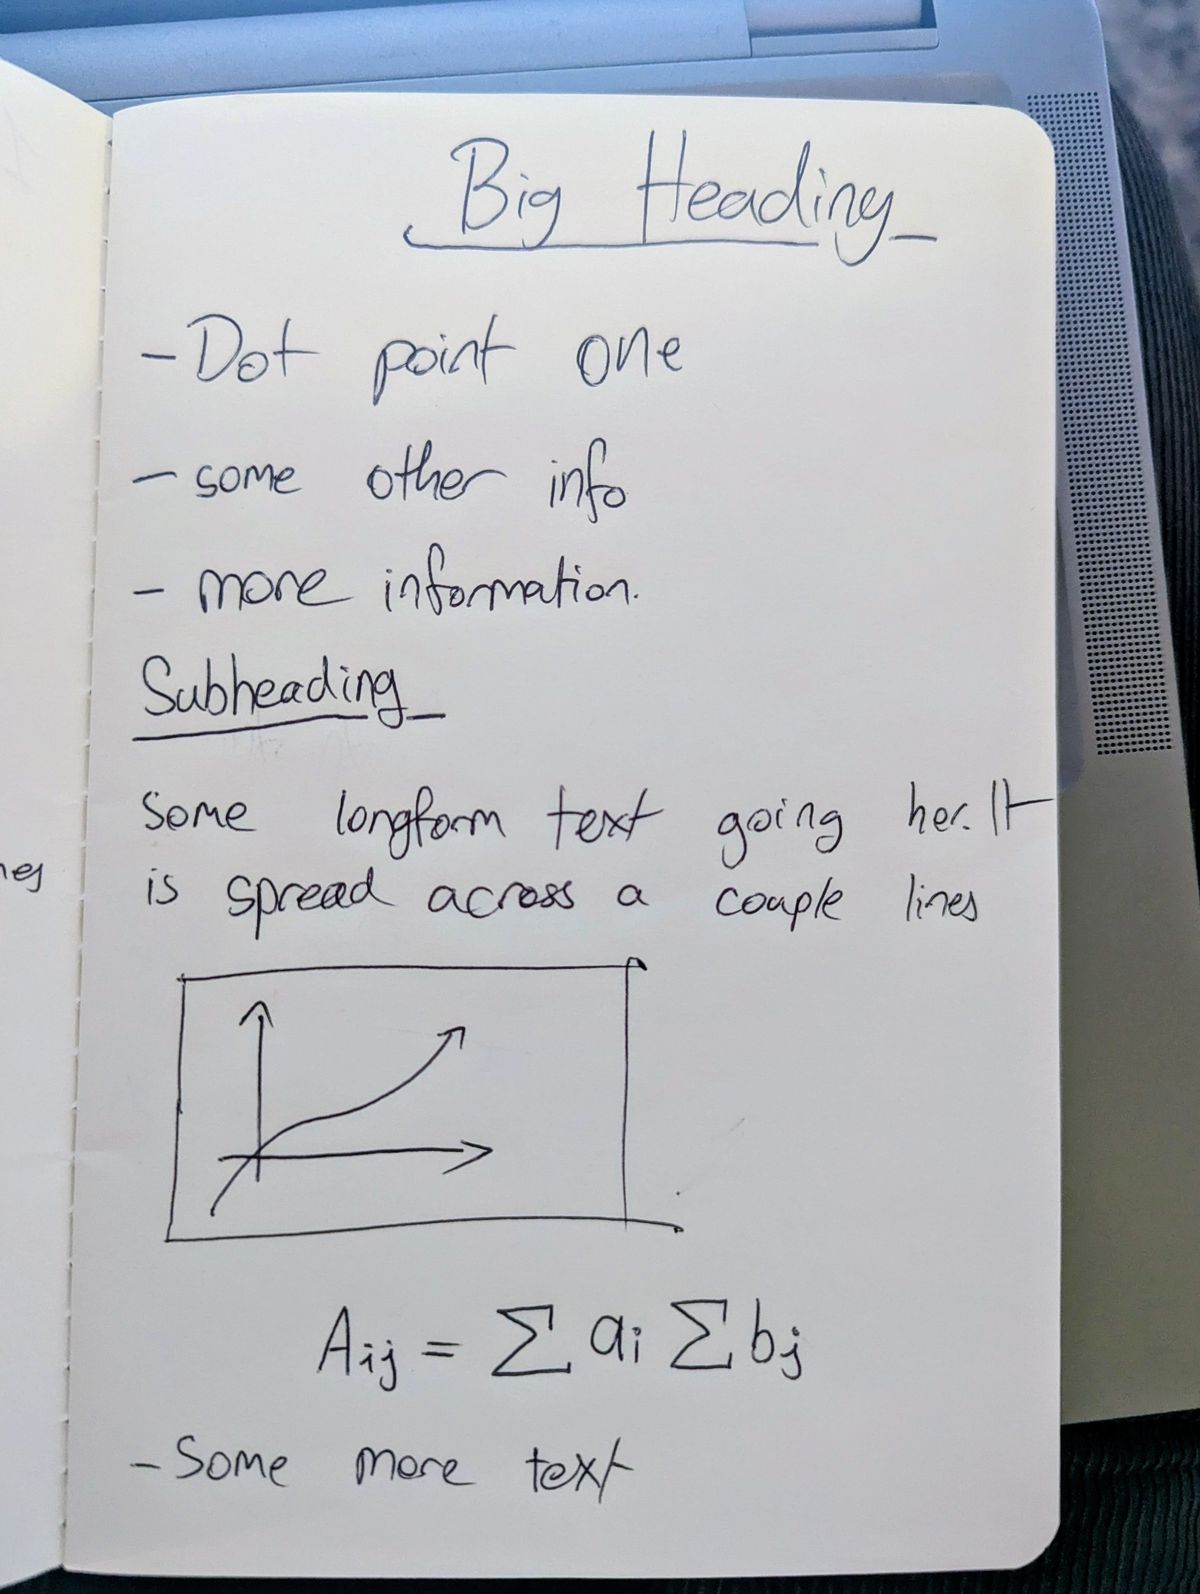 Big Heading
- Dot point one
- some other info
- more information.
Subheading
Some longform text going her. It
is spread across a couple lines
Aij = ∑ ai ∑ bj
- Some more text